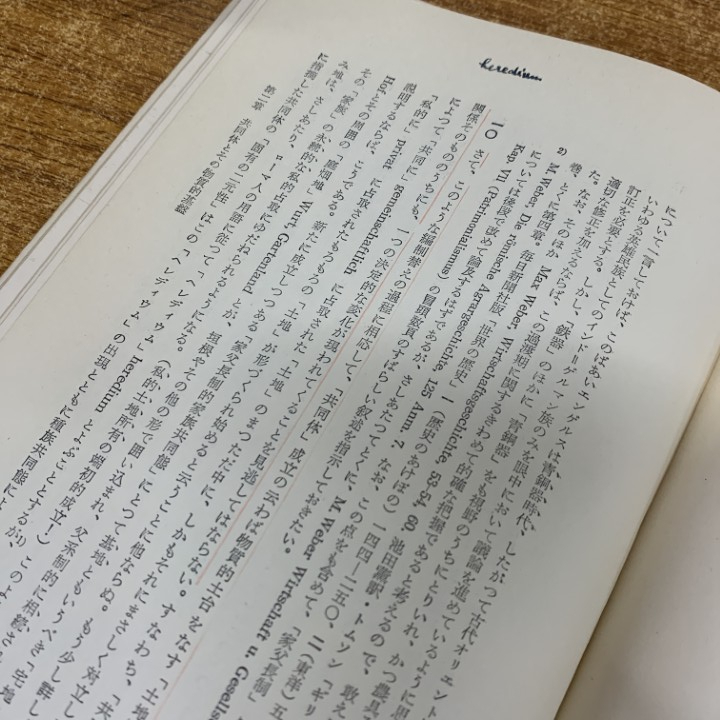 heredium
について一言しておけば、このばあいエンゲルスは青銅器時代、したがって古代オリエント
いわゆる英雄民族としてのインド=ゲルマン族のみを眼中において議論を進めているように思
訂正を必要とする。しかし、「鉄器」のほかに「青銅器」をも視野のうちにとりいれ、かつ農具
適切な修正を加えるならば、この過渡期に関するきわめて的確な把握であると考えるので、敢え
た。なお、そのほか
巻、とくに第四章。
2) M. Weber, Die römische Agrargeschichte, 125 Anm. 7. なお、この点をも含めて、「家父長制」
については後段で改めて論及するはずであるが、さしあたってとくに、M. Weber, Wirtschaft u. Gesells
Kap. VII (Patrimonialismus) の冒頭数頁のすばらしい叙述を指示しておきたい。
一〇 さて、このような編制替えの過程に相応して、「共同体」成立の云わば物質的土台をなす「土地
關係そのもののうちにも、一つの決定的な変化が現われてくることを見逃してはならない。すなわち、「共
によって「共同に」 gemeinschaftlich に占取された「土地」のまっただ中に、しかもそれにまさしく対立し
「私的に」 privat に占取されたもろもろの「土地」が形づくられ始めると云うことに他ならぬ。もう少し詳し
説明するならば、こうである。新たに成立しつつある「家父長制的家族共同態」にとって基地ともいうべき「宅地
Hof とその周囲の「庭畑地」 Wurt, Gartenland とが、垣根やその他の形で囲い込まれ、父系制的に相続さ
その「家族」の永続的な私的占取にゆだねられるようになる。(私的土地所有の端初的成立!)
み地は、さしあたり、ローマ人の用語に従って「ヘレディウム」 heredium とよぶこととするが、このよ
に指摘した共同体の「固有の二元性」はこの「ヘレディウム」の出現とともに種族共同態によ
第二章 共同体とその物質的基盤